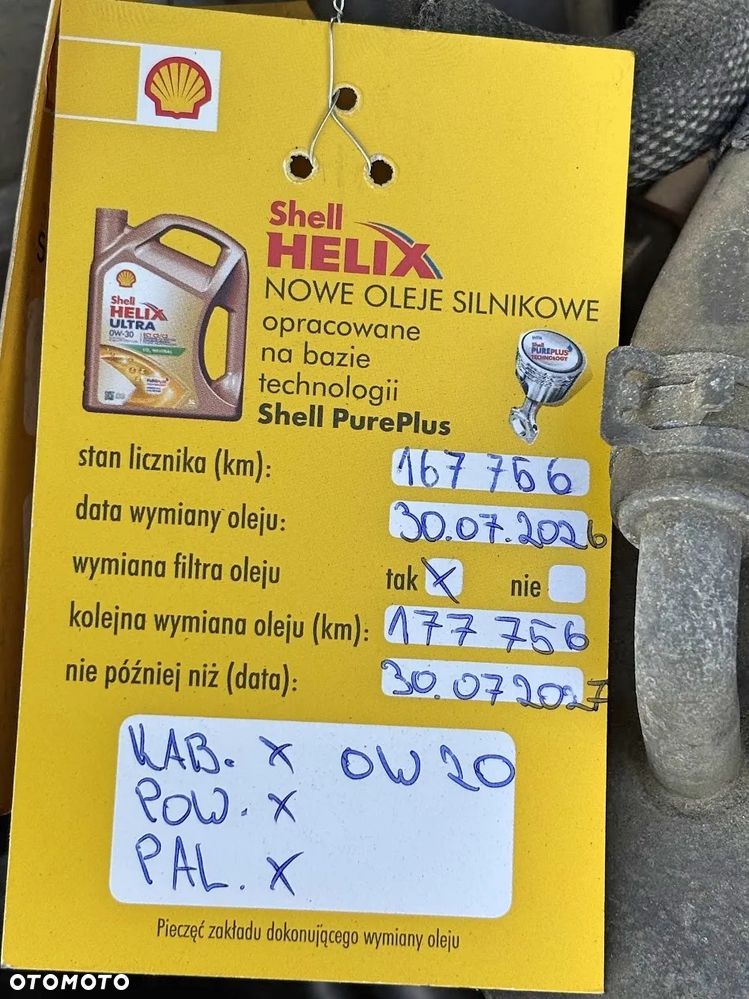 Shell
HELIX
NOWE OLEJE SILNIKOWE
opracowane
na bazie
technologii
Shell PurePlus
Shell
HELIX
ULTRA
0W-30
Shell
PUREPLUS
TECHNOLOGY
stan licznika (km): 167 756
data wymiany oleju: 30.07.2026
wymiana filtra oleju tak X nie
kolejna wymiana oleju (km): 177 756
nie później niż (data): 30.07 2027
KAB. X 0W20
POW. X
PAL. X
Pieczęć zakładu dokonującego wymiany oleju
OTOMOTO